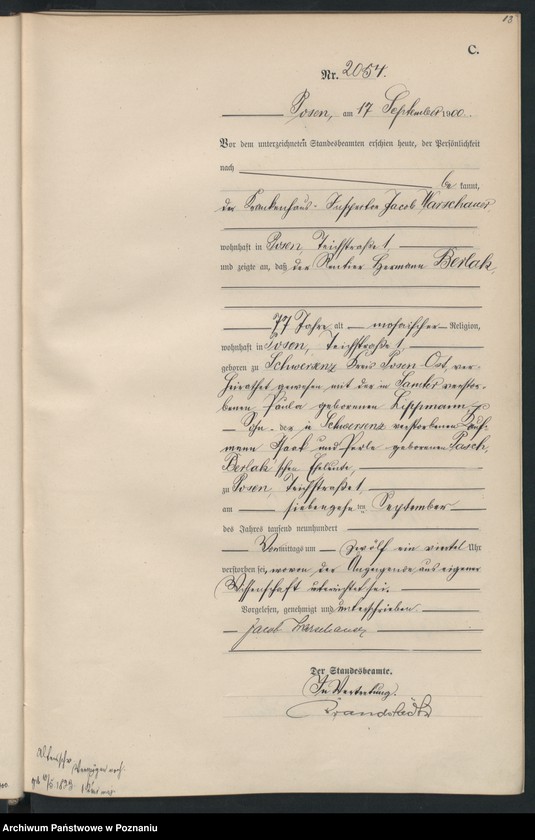 13
C.
Nr. 2054.
Posen, am 17 September 1900.
Vor dem unterzeichneten Standesbeamten erschien heute, der Persönlichkeit
nach
be kannt,
der Krankenhaus-Inspector Jacob Warschauer
wohnhaft in Posen Teichstraße 1,
und zeigte an, daß der Rentier Hermann Berlak,
77 Jahre alt mosaischer Religion,
wohnhaft in Posen, Teichstraße 1,
geboren zu Schwersenz Kreis Posen Ost, ver-
heirathet gewesen mit der in Samter verstor-
benen Paula geborenen Lippmann,
Sohn der in Schwersenz verstorbenen Kauf-
mann Isaak und Perle geborenen Pasch,
Berlak'schen Eheleute,
zu Posen, Teichstraße 1,
am siebenzehnten September
des Jahres tausend neunhundert
Vormittags um zwölf ein viertel Uhr
verstorben sei, wovon der Anzeigende aus eigener
Wissenschaft unterrichtet sei.
Vorgelesen, genehmigt und unterschrieben.
Jacob Warschauer
Der Standesbeamte.
In Vertretung.
Brandstädt
1899
Archiwum Państwowe w Poznaniu